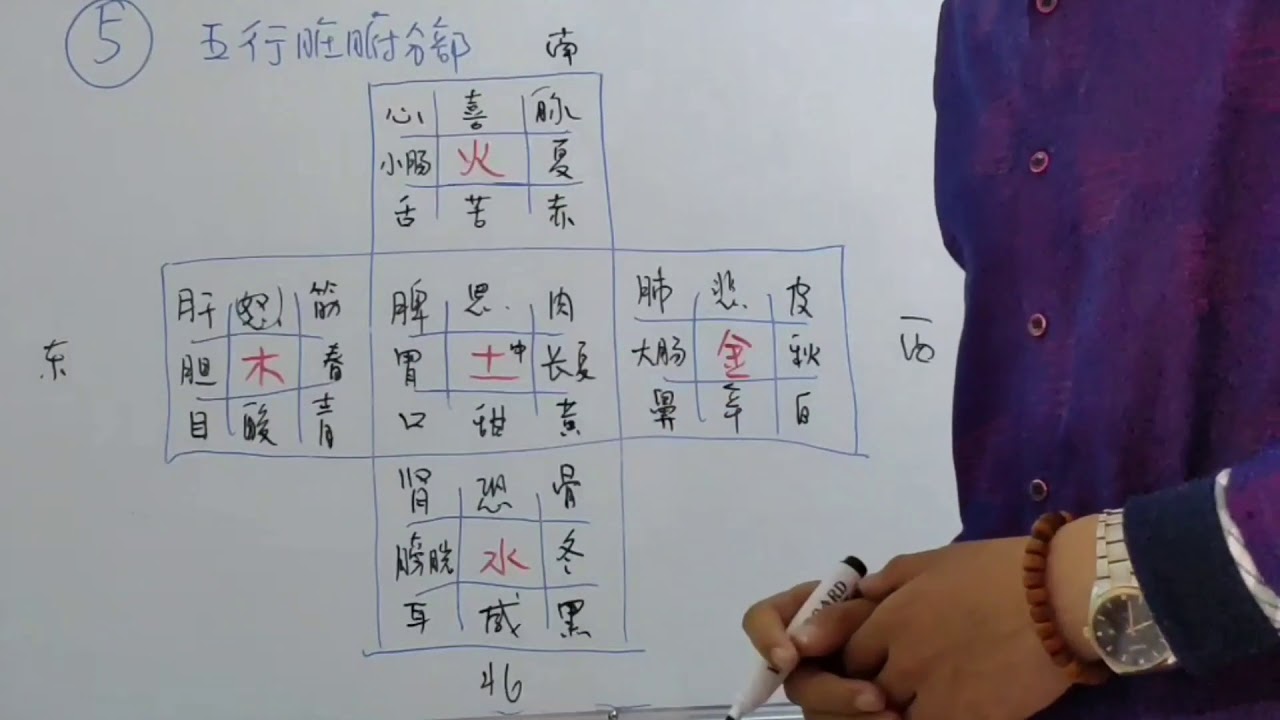 5 五行脏腑分部
南
心 喜 脉
小肠 火 夏
舌 苦 赤
肝 怒 筋 脾 思 肉 肺 悲 皮
东 胆 木 春 胃 土 中 长夏 大肠 金 秋 西
目 酸 青 口 甜 黄 鼻 辛 白
肾 恐 骨
膀胱 水 冬
耳 咸 黑
北
BOARD